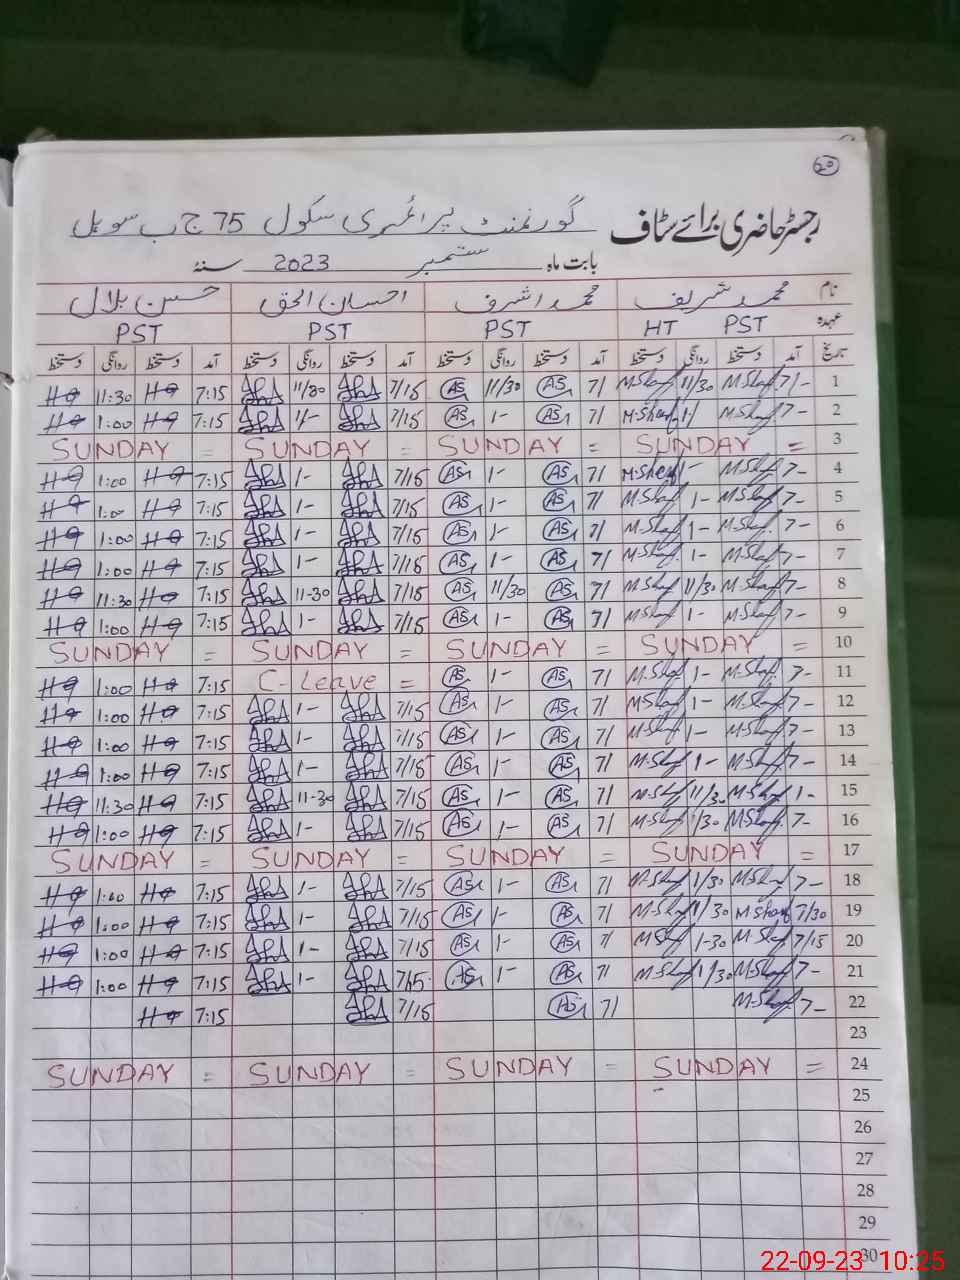 60
رجسٹر حاضری برائے سٹاف گورنمنٹ پرائمری سکول 75 ج ب سوہل
بابت ماہ ستمبر 2023 سنۂ
نام محمد شریف محمد اشرف احسان الحق حسن بلال
عہدہ HT PST PST PST PST
تاریخ آمد دستخط روانگی دستخط آمد دستخط روانگی دستخط آمد دستخط روانگی دستخط آمد دستخط روانگی دستخط
H 11:30 H 7:15 11/30 7/15 AS 11/30 AS 7/ M.Shaf 11/30 M.Shaf 7/- 1
H 1:00 H 7:15 1/- 7/15 AS 1- AS 7/ M.Sharf 1/ M.Shaf 7- 2
SUNDAY = SUNDAY = SUNDAY = SUNDAY = 3
H 1:00 H 7:15 1- 7/15 AS 1- AS 7/ M.Sharf 1- M.Shaf 7- 4
H 1:00 H 7:15 1- 7/15 AS 1- AS 7/ M.Shaf 1- M.Shaf 7- 5
H 1:00 H 7:15 1- 7/15 AS 1- AS 7/ M.Shaf 1- M.Shaf 7- 6
H 1:00 H 7:15 1- 7/15 AS 1- AS 7/ M.Shaf 1- M.Shaf 7- 7
H 11:30 H 7:15 11-30 7/15 AS 11/30 AS 7/ M.Shaf 11/30 M.Shaf 7- 8
H 1:00 H 7:15 1- 7/15 AS 1- AS 7/ M.Shaf 1- M.Shaf 7- 9
SUNDAY = SUNDAY = SUNDAY = SUNDAY = 10
H 1:00 H 7:15 C-Leave = AS 1- AS 7/ M.Shaf 1- M.Shaf 7- 11
H 1:00 H 7:15 1- 7/15 AS 1- AS 7/ M.Shaf 1- M.Shaf 7- 12
H 1:00 H 7:15 1- 7/15 AS 1- AS 7/ M.Shaf 1- M.Shaf 7- 13
H 1:00 H 7:15 1- 7/15 AS 1- AS 7/ M.Shaf 1- M.Shaf 7- 14
H 11:30 H 7:15 11-30 7/15 AS 1- AS 7/ M.Shaf 11/30 M.Shaf 1- 15
H 1:00 H 7:15 1- 7/15 AS 1- AS 7/ M.Shaf 1/30 M.Shaf 7- 16
SUNDAY = SUNDAY = SUNDAY = SUNDAY = 17
H 1:00 H 7:15 1- 7/15 AS 1- AS 7/ M.Shaf 1/30 M.Shaf 7- 18
H 1:00 H 7:15 1- 7/15 AS 1- AS 7/ M.Shaf 1/30 M.Sharf 7/30 19
H 1:00 H 7:15 1- 7/15 AS 1- AS 7/ M.Shaf 1-30 M.Shaf 7/15 20
H 1:00 H 7:15 1- 7/15 AS 1- AS 7/ M.Shaf 1/30 M.Shaf 7- 21
H 7:15 7/15 AS 7/ M.Shaf 7- 22
23
SUNDAY = SUNDAY = SUNDAY = SUNDAY = 24
25
26
27
28
29
30
22-09-23 10:25